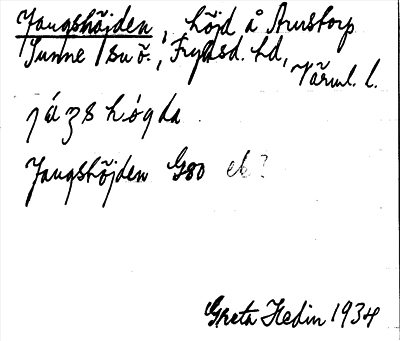 Jaugshöjden, höjd å Arnstorp
Sunne sn ö., Fryksd. hd,
Värml. l.
jázshógda
Jaugshöjden G80 ek?
Greta Hedin 1934